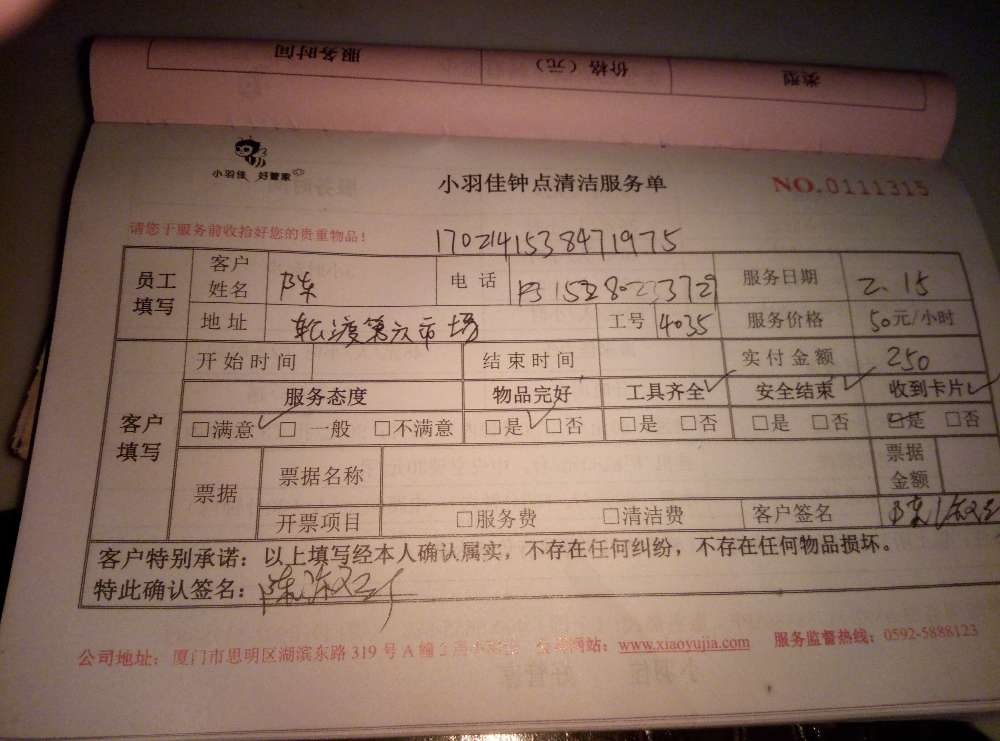 服务时间 价格（元） 类型
小羽佳 好管家
小羽佳钟点清洁服务单 NO.0111315
请您于服务前收拾好您的贵重物品！
170214153847197 5
员工填写 客户姓名 陈 电话 服务日期 2.15
地址 第六市场 工号 4035 服务价格 50元/小时
客户填写 开始时间 结束时间 实付金额 250
服务态度 物品完好 工具齐全✓ 安全结束✓ 收到卡片✓
□满意✓ □一般 □不满意 □是✓ □否 □是 □否 □是 □否 □是 □否
票据 票据名称 票据金额
开票项目 □服务费 □清洁费 客户签名 陈
客户特别承诺：以上填写经本人确认属实，不存在任何纠纷，不存在任何物品损坏。
特此确认签名：陈
公司地址：厦门市思明区湖滨东路319号A幢 网站：www.xiaoyujia.com 服务监督热线：0592-5888123